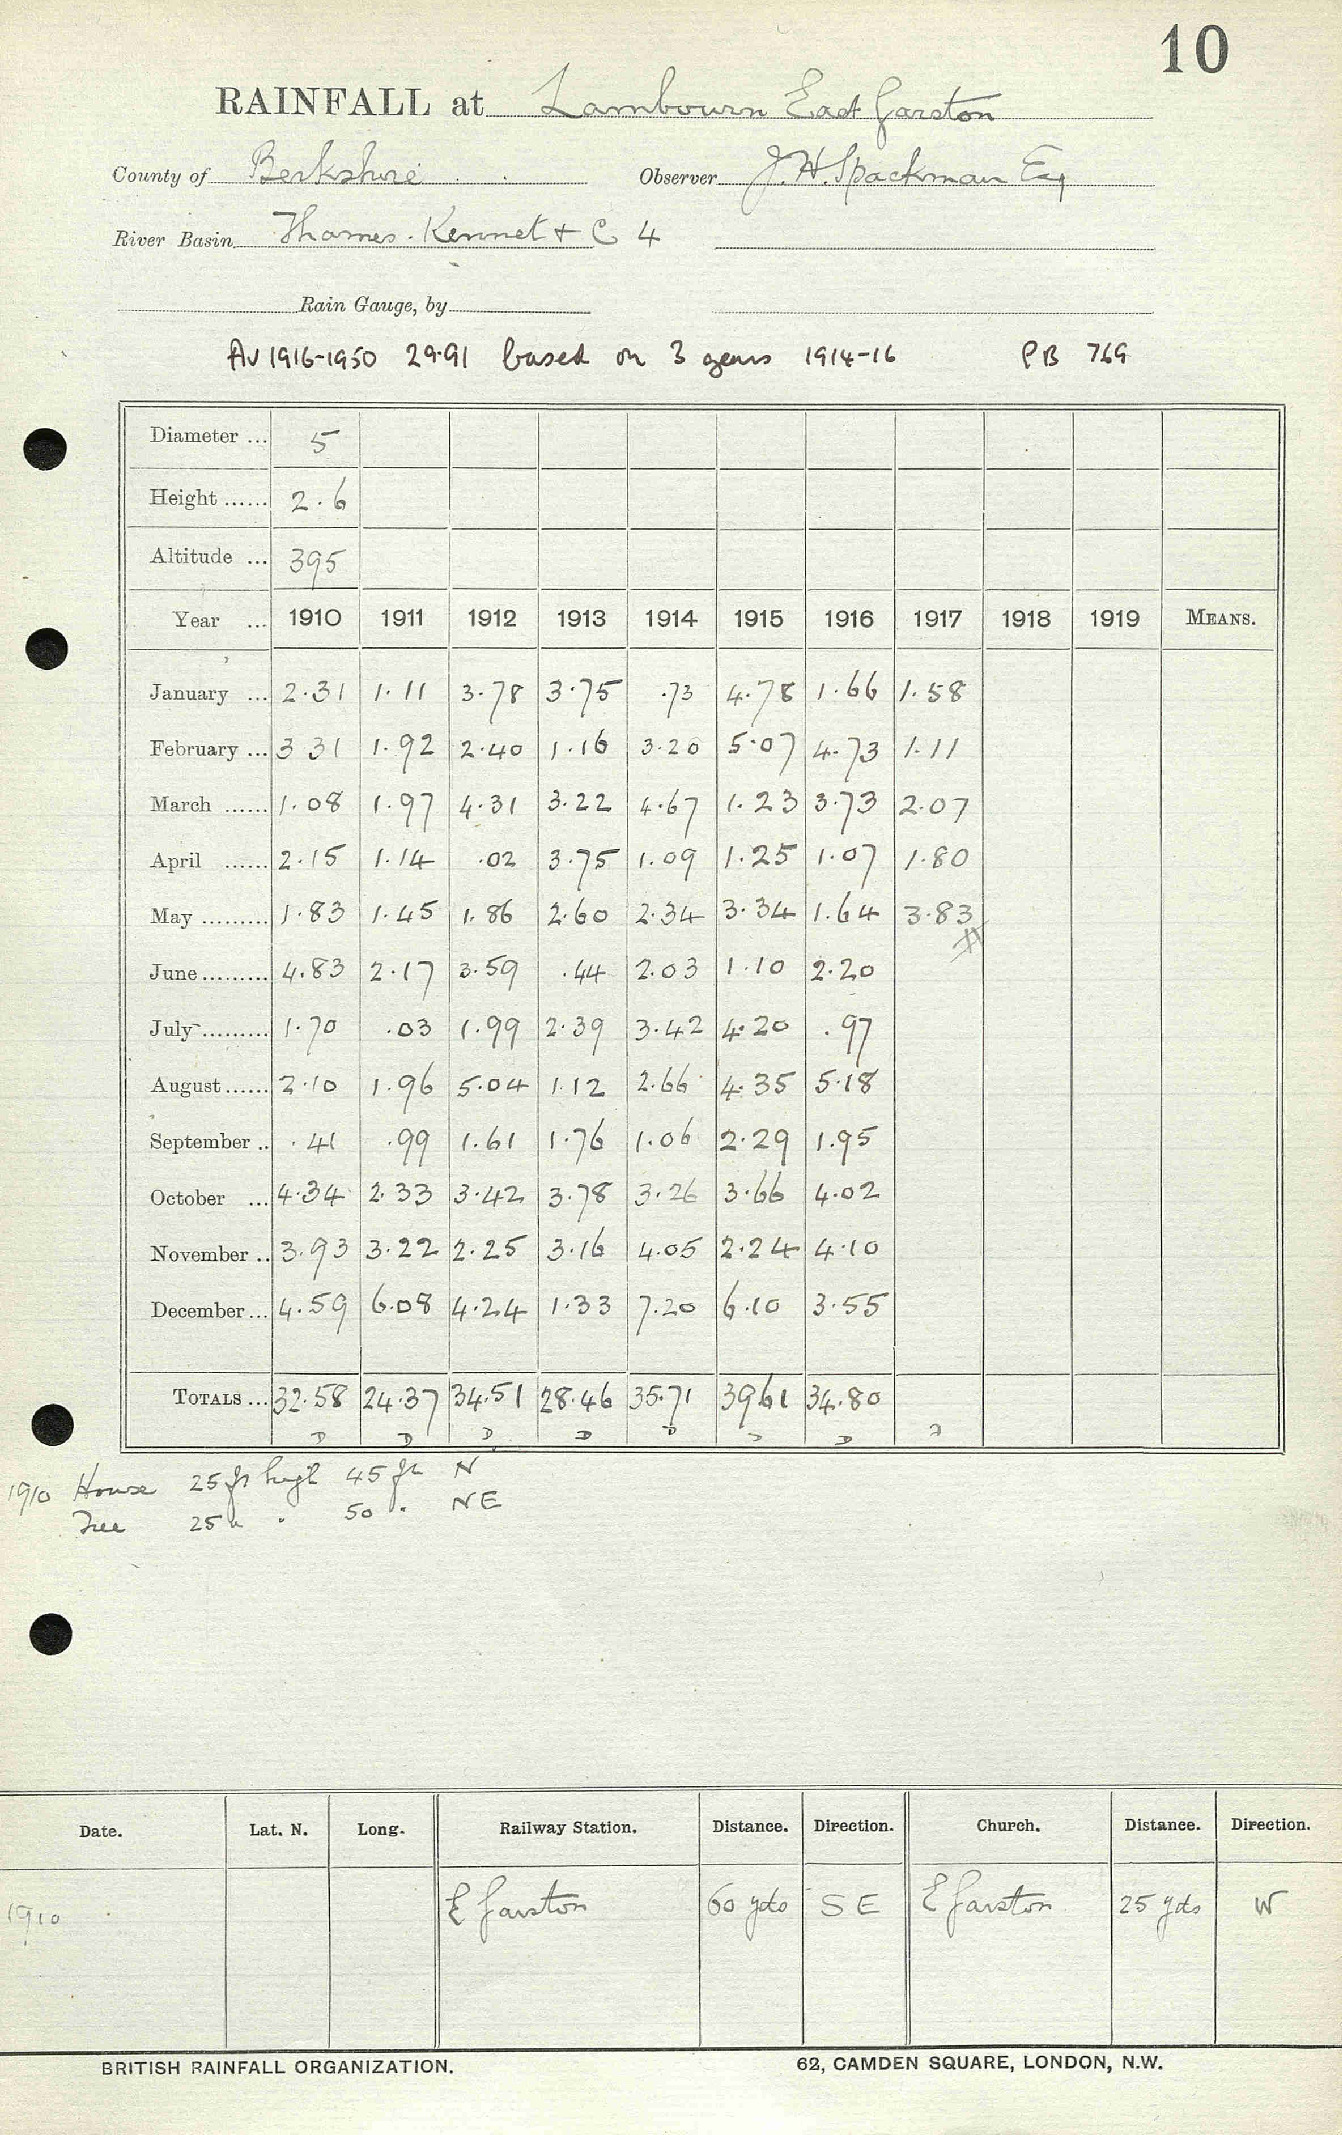 10
RAINFALL at Lambourn East Garston
County of Berkshire Observer J. H. Spackman Esq
River Basin Thames. Kennet + C 4
Rain Gauge, by
Av 1916-1950 29.91 based on 3 years 1914-16 PB 769
Diameter ... 5
Height ...... 2.6
Altitude ... 395
Year ... 1910 1911 1912 1913 1914 1915 1916 1917 1918 1919 MEANS.
January ... 2.31 1.11 3.78 3.75 .73 4.78 1.66 1.58
February ... 3 31 1.92 2.40 1.16 3.20 5.07 4.73 1.11
March ...... 1.08 1.97 4.31 3.22 4.67 1.23 3.73 2.07
April ...... 2.15 1.14 .02 3.75 1.09 1.25 1.07 1.80
May ......... 1.83 1.45 1.86 2.60 2.34 3.34 1.64 3.83
June......... 4.83 2.17 3.59 .44 2.03 1.10 2.20
July......... 1.70 .03 1.99 2.39 3.42 4.20 .97
August...... 2.10 1.96 5.04 1.12 2.66 4.35 5.18
September .. .41 .99 1.61 1.76 1.06 2.29 1.95
October ... 4.34 2.33 3.42 3.78 3.26 3.66 4.02
November .. 3.93 3.22 2.25 3.16 4.05 2.24 4.10
December... 4.59 6.08 4.24 1.33 7.20 6.10 3.55
TOTALS ... 32.58 24.37 34.51 28.46 35.71 3961 34.80
1910 House 25 ft high 45 ft N
Tree 25 " . 50 . NE
Date. Lat. N. Long. Railway Station. Distance. Direction. Church. Distance. Direction.
1910 E Garston 60 yds S E E Garston 25 yds W
BRITISH RAINFALL ORGANIZATION. 62, CAMDEN SQUARE, LONDON, N.W.